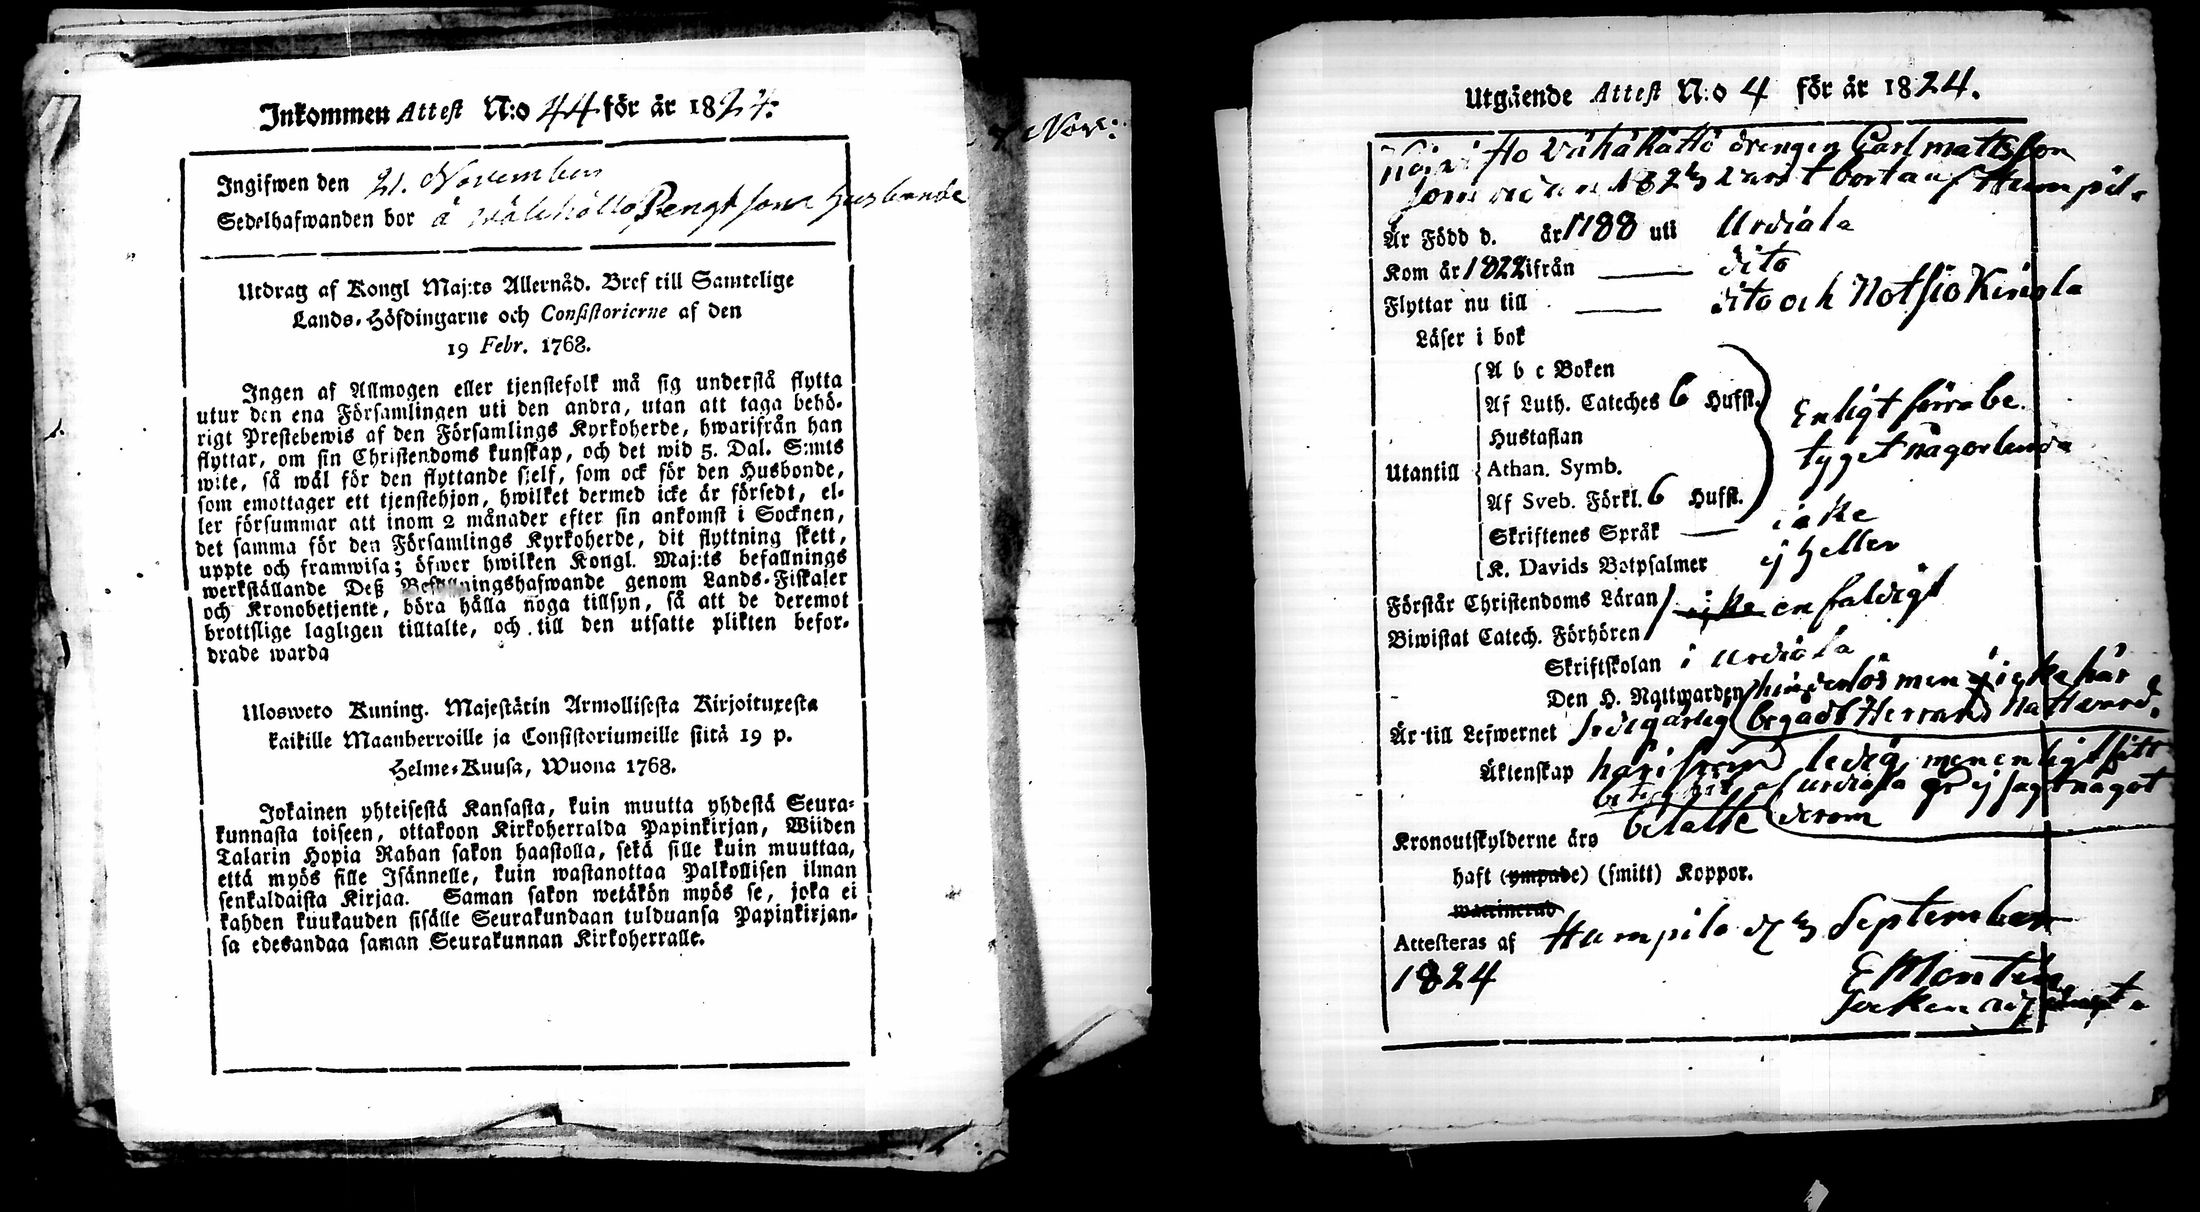 Inkommen Attest N:o 44 för år 1824.
Ingifwen den 21. November
Sedelhafwanden bor å Bengt som husbonde
Utdrag af Kongl Maj:ts Allernåd. Bref till Samtelige
Lands-Höfdingarne och Consistorierne af den
19 Febr. 1768.
Ingen af Allmogen eller tjenstefolk må sig understå flytta
utur den ena Församlingen uti den andra, utan att taga behö-
rigt Prestebewis af den Församlings Kyrkoherde, hwarifrån han
flyttar, om sin Christendoms kunskap, och det wid 5. Dal. S:mts
wite, så wäl för den flyttande sjelf, som ock för den Husbonde,
som emottager ett tjenstehjon, hwilket dermed icke är försedt, el-
ler försummar att inom 2 månader efter sin ankomst i Socknen,
det samma för den Församlings Kyrkoherde, dit flyttning skett,
uppte och framwisa; öfwer hwilken Kongl. Maj:ts befallnings
werkställande Deß Befallningshafwande genom Lands-Fiskaler
och Kronobetjente, böra hålla noga tillsyn, så att de deremot
brottslige lagligen tilltalte, och till den utsatte plikten befor-
drade warda
Ulosweto Kuning. Majestätin Armollisesta Kirjoituxesta
kaikille Maanherroille ja Consistoriumeille siitä 19 p.
Helme-Kuusa, Wuona 1768.
Jokainen yhteisestä Kansasta, kuin muutta yhdestä Seura-
kunnasta toiseen, ottakoon Kirkoherralda Papinkirjan, Wiiden
Talarin Hopia Rahan sakon haastolla, sekä sille kuin muuttaa,
että myös sille Isännelle, kuin wastanottaa Palkollisen ilman
senkaldaista Kirjaa. Saman sakon wetäkön myös se, joka ei
kahden kuukauden sisälle Seurakundaan tulduansa Papinkirjan-
sa edesandaa saman Seurakunnan Kirkoherralle.
Nov:
Utgående Attest N:o 4 för år 1824.
drengen Carl Mattsson
som 1823 varit bort af Humpil.
Är Född d. år 1788 uti Urdiala
Kom år 1822 ifrån dito
Flyttar nu till dito och
Läser i bok
Utantill
A b c Boken
Af Luth. Cateches 6 Hufst.
Hustaflan
Athan. Symb.
Af Sveb. Förkl. 6 Hufst.
Enligt förra be
tyget någorlunda
Skriftenes Språk icke
K. Davids Botpsalmer ej heller
Förstår Christendoms Läran enfaldigt
Biwistat Catech. Förhören
Skriftskolan i Urdiala
Den H. Nattwarden men icke här
Är till Lefwernet begådt Herrans Nattvard.
Äktenskap ledig, men enligt sitt
af Urdiala ej sagt något
Kronoutskylderne äro betalte derom
haft (ympade) (smitt) Koppor.
waccinerad
Attesteras af Humpila d 7 September
1824
E Montin
Socken adjunct.